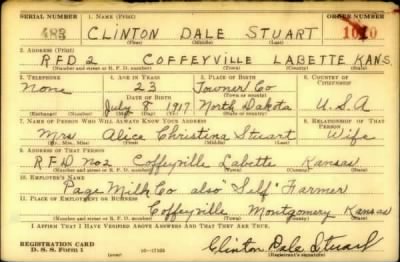 SERIAL NUMBER 1. NAME (Print) ORDER NUMBER
483 CLINTON DALE STUART 1010
(First) (Middle) (Last)
2. ADDRESS (Print)
RFD 2 COFFEYVILLE LABETTE KANS
(Number and street or R. F. D. number) (Town) (County) (State)
3. TELEPHONE 4. AGE IN YEARS 5. PLACE OF BIRTH 6. COUNTRY OF CITIZENSHIP
None 23 Towner Co
DATE OF BIRTH
July 8 1917 North Dakota U.S.A
(Exchange) (Number) (Mo.) (Day) (Yr.) (State or country)
7. NAME OF PERSON WHO WILL ALWAYS KNOW YOUR ADDRESS 8. RELATIONSHIP OF THAT PERSON
Mrs Alice Christina Stuart Wife
(Mr., Mrs., Miss) (First) (Middle) (Last)
9. ADDRESS OF THAT PERSON
RFD No2 Coffeyville Labette Kansas
(Number and street or R. F. D. number) (Town) (County) (State)
10. EMPLOYER'S NAME
Page Milk Co also "Self" Farmer
11. PLACE OF EMPLOYMENT OR BUSINESS
Coffeyville Montgomery Kansas
(Number and street or R. F. D. number) (Town) (County) (State)
I AFFIRM THAT I HAVE VERIFIED ABOVE ANSWERS AND THAT THEY ARE TRUE.
REGISTRATION CARD
D. S. S. Form 1 Clinton Dale Stuart
(Registrant's signature)